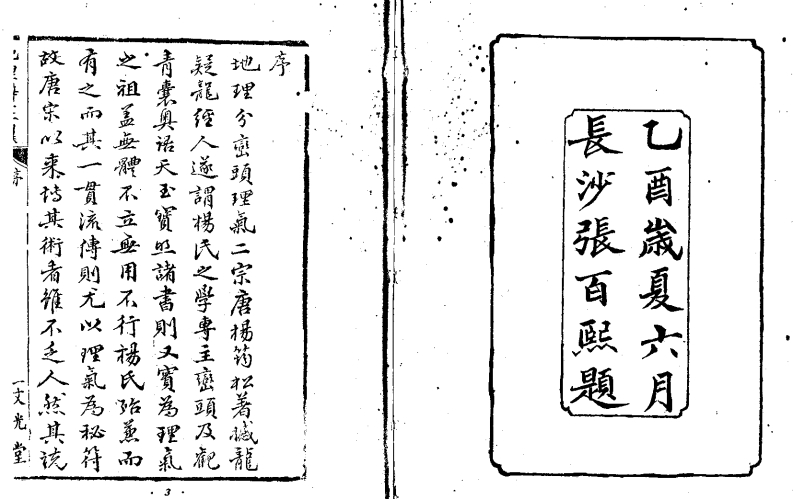 乙酉歲夏六月
長沙張百熙題
序
地理分巒頭理氣二宗唐楊筠松著撼龍
疑龍經人遂謂楊氏之學專主巒頭及觀
青囊奧語天玉寶照諸書則又實為理氣
之祖蓋無體不立無用不行楊氏殆兼而
有之而其一貫流傳則尤以理氣為秘符
故唐宋以來恃其術者雖不乏人然其說
序
文光堂
3